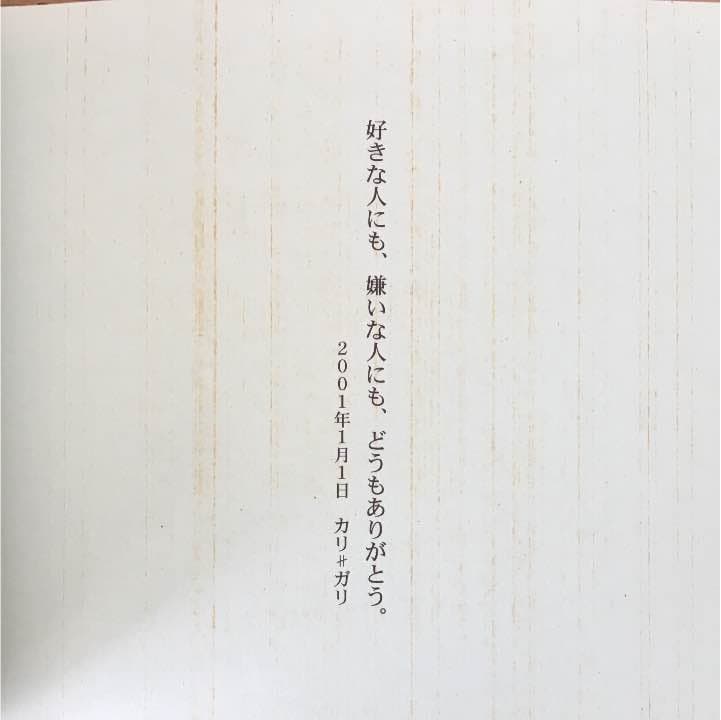 好きな人にも、嫌いな人にも、どうもありがとう。
２００１年１月１日　カリ♯ガリ